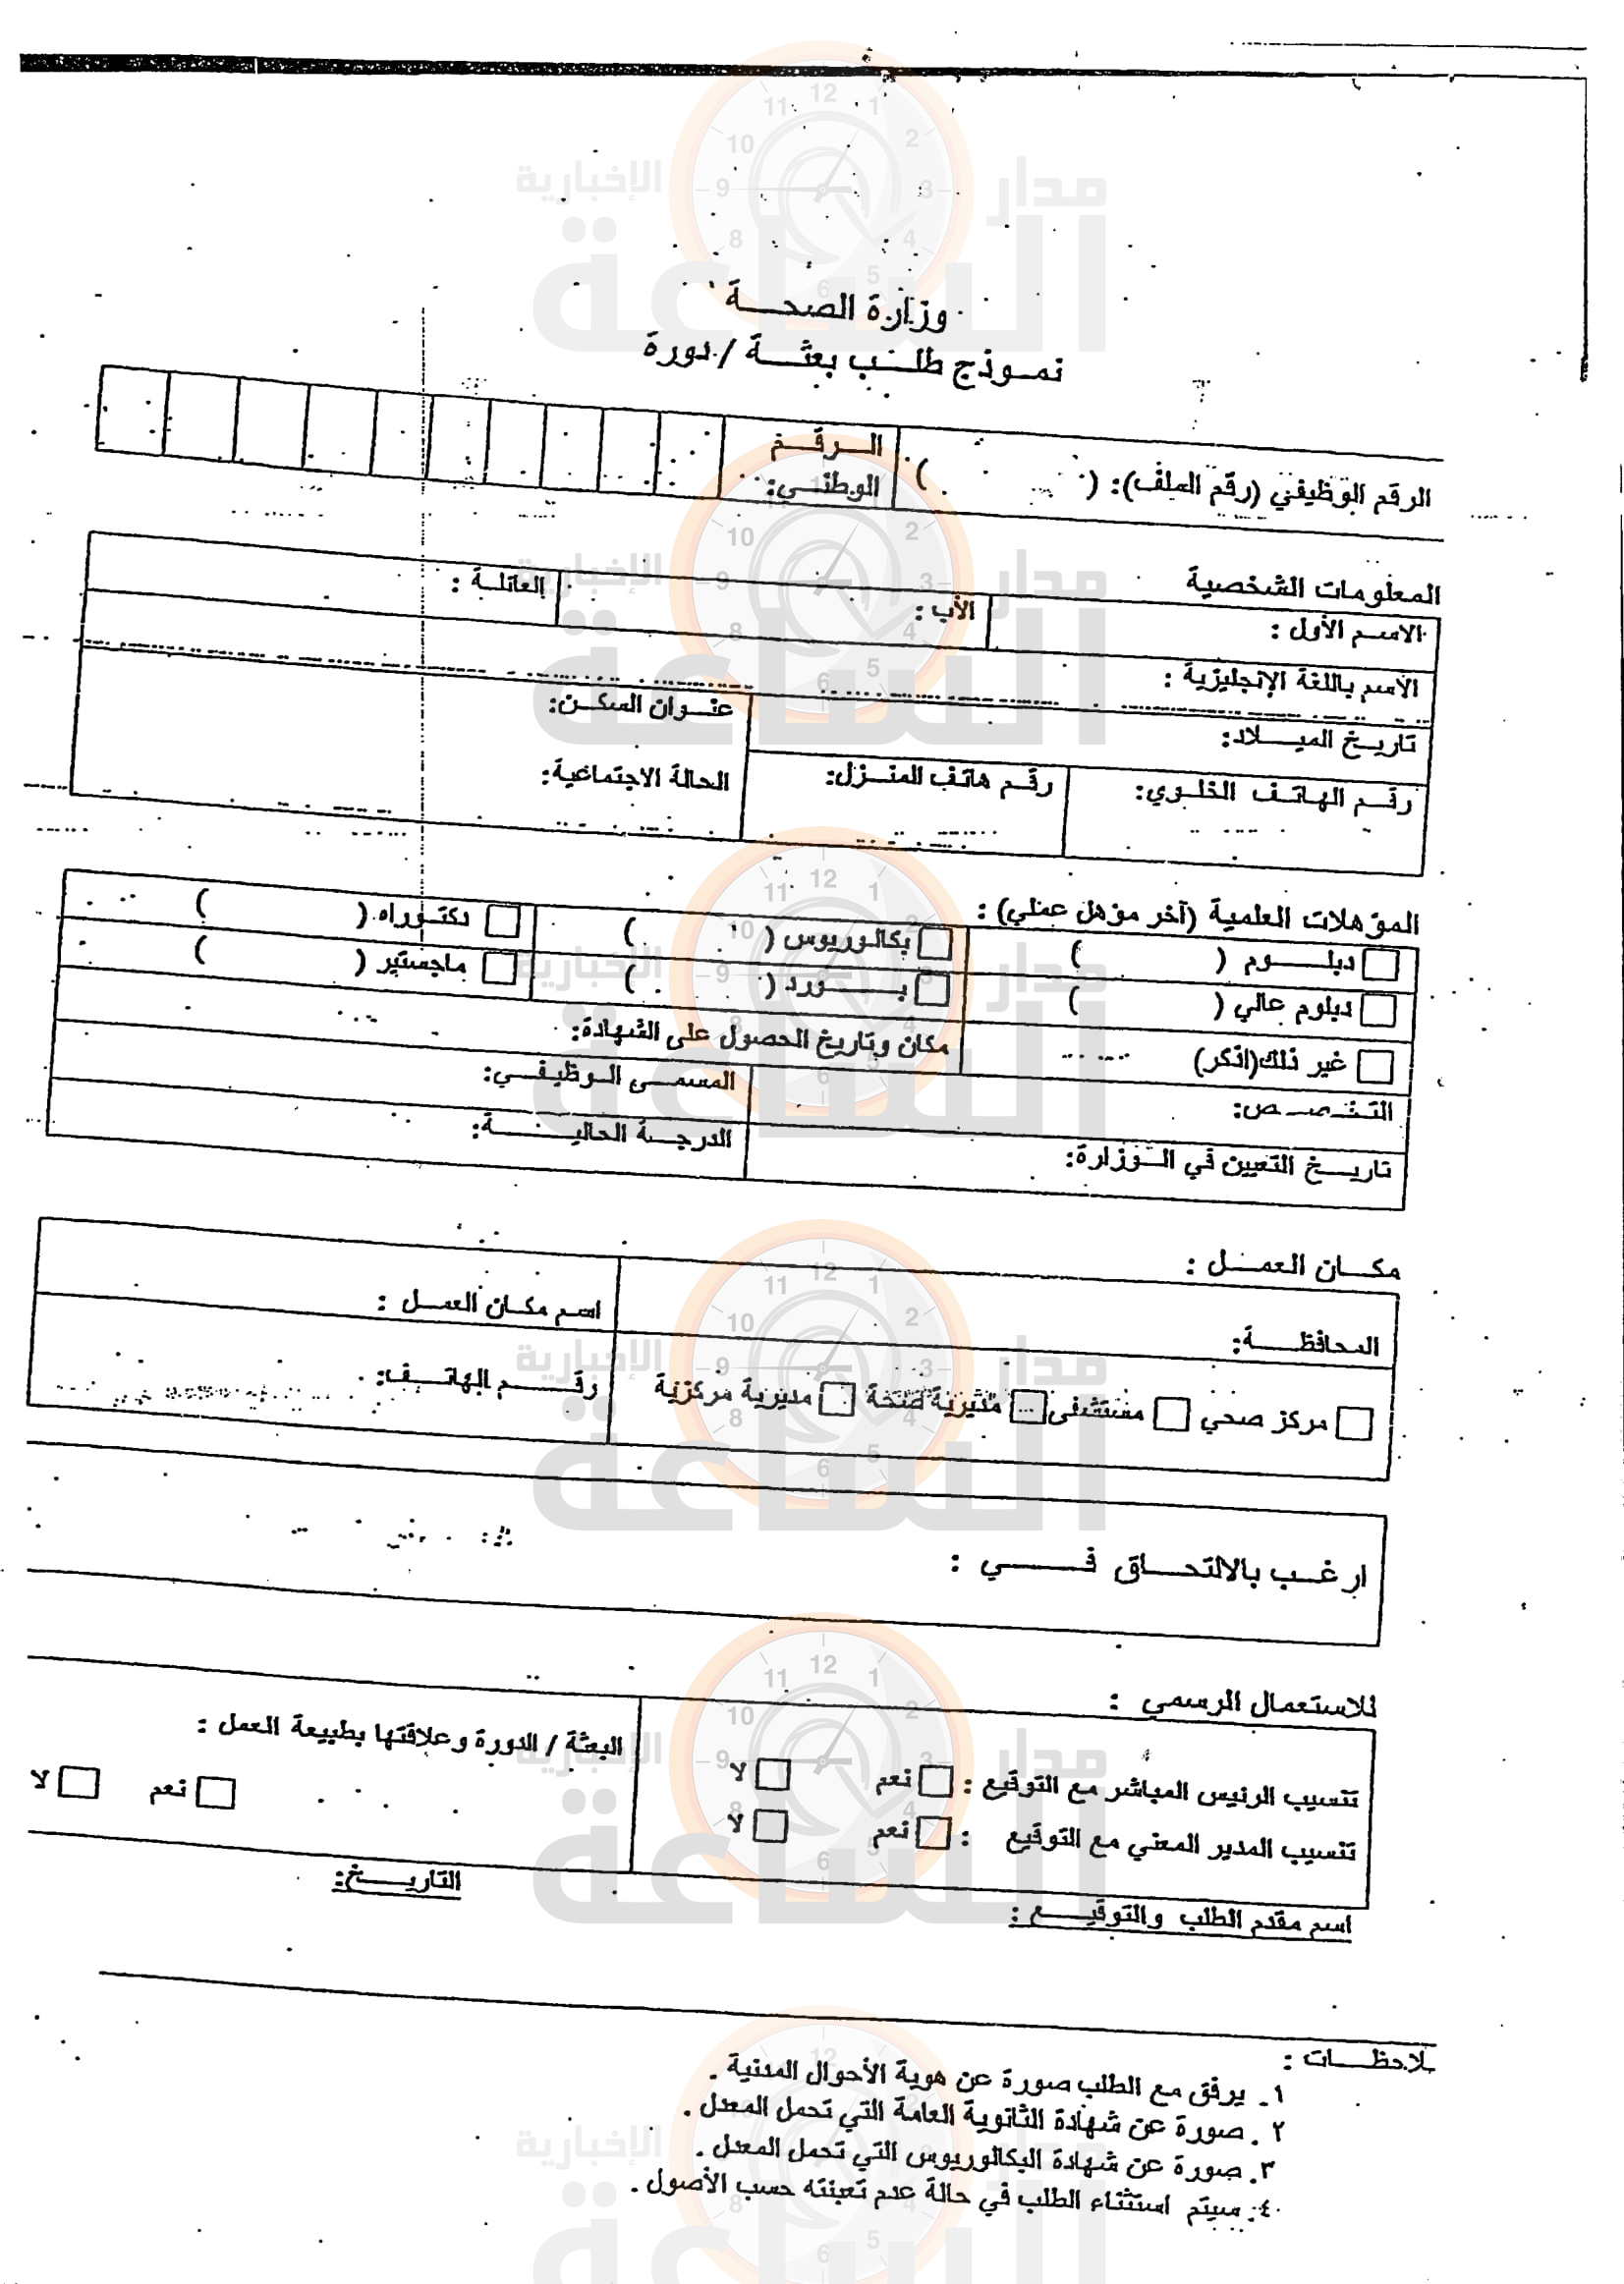 وزارة الصحـــة
نمـوذج طلــب بعثـــة / دورة
الرقم الوظيفي (رقم الملف): ( )
الـــرقـــم الوطنــي:
المعلومات الشخصية
الاسم الأول :
الأب :
العائلـة :
الاسم باللغة الإنجليزية :
تاريـخ الميـــلاد:
عنـوان السكـن:
رقـم الهاتـف الخلـوي:
رقـم هاتف المنـزل:
الحالة الاجتماعية:
المؤهلات العلمية (آخر مؤهل عملي) :
دبلــــوم ( )
بكالـوريوس ( )
دكتــوراه ( )
دبلوم عالي ( )
بـــــورد ( )
ماجستير ( )
غير ذلك(اذكر)
مكان وتاريخ الحصول على الشهادة:
التخـصـص:
المسمـى الـوظيفـي:
تاريــخ التعيين في الـــوزارة:
الدرجــة الحاليــــة:
مكـــان العمــل :
المحافظــــة:
اسـم مكـان العمـل :
مركز صحي
مستشفى
مديرية صحة
مديرية مركزية
رقــــم الهاتــف:
ارغــب بالالتحــاق فــــي :
للاستعمال الرسمي :
تنسيب الرئيس المباشر مع التوقيع : نعم لا
البعثة / الدورة وعلاقتها بطبيعة العمل :
نعم لا
تنسيب المدير المعني مع التوقيع : نعم لا
اسم مقدم الطلب والتوقيـــع :
التاريـــخ:
ملاحظـــات :
١ـ يرفق مع الطلب صورة عن هوية الأحوال المدنية .
٢ . صورة عن شهادة الثانوية العامة التي تحمل المعدل .
٣. صورة عن شهادة البكالوريوس التي تحمل المعدل .
٤. سيتم استثناء الطلب في حالة عدم تعبئته حسب الأصول .
مدار الساعة الإخبارية